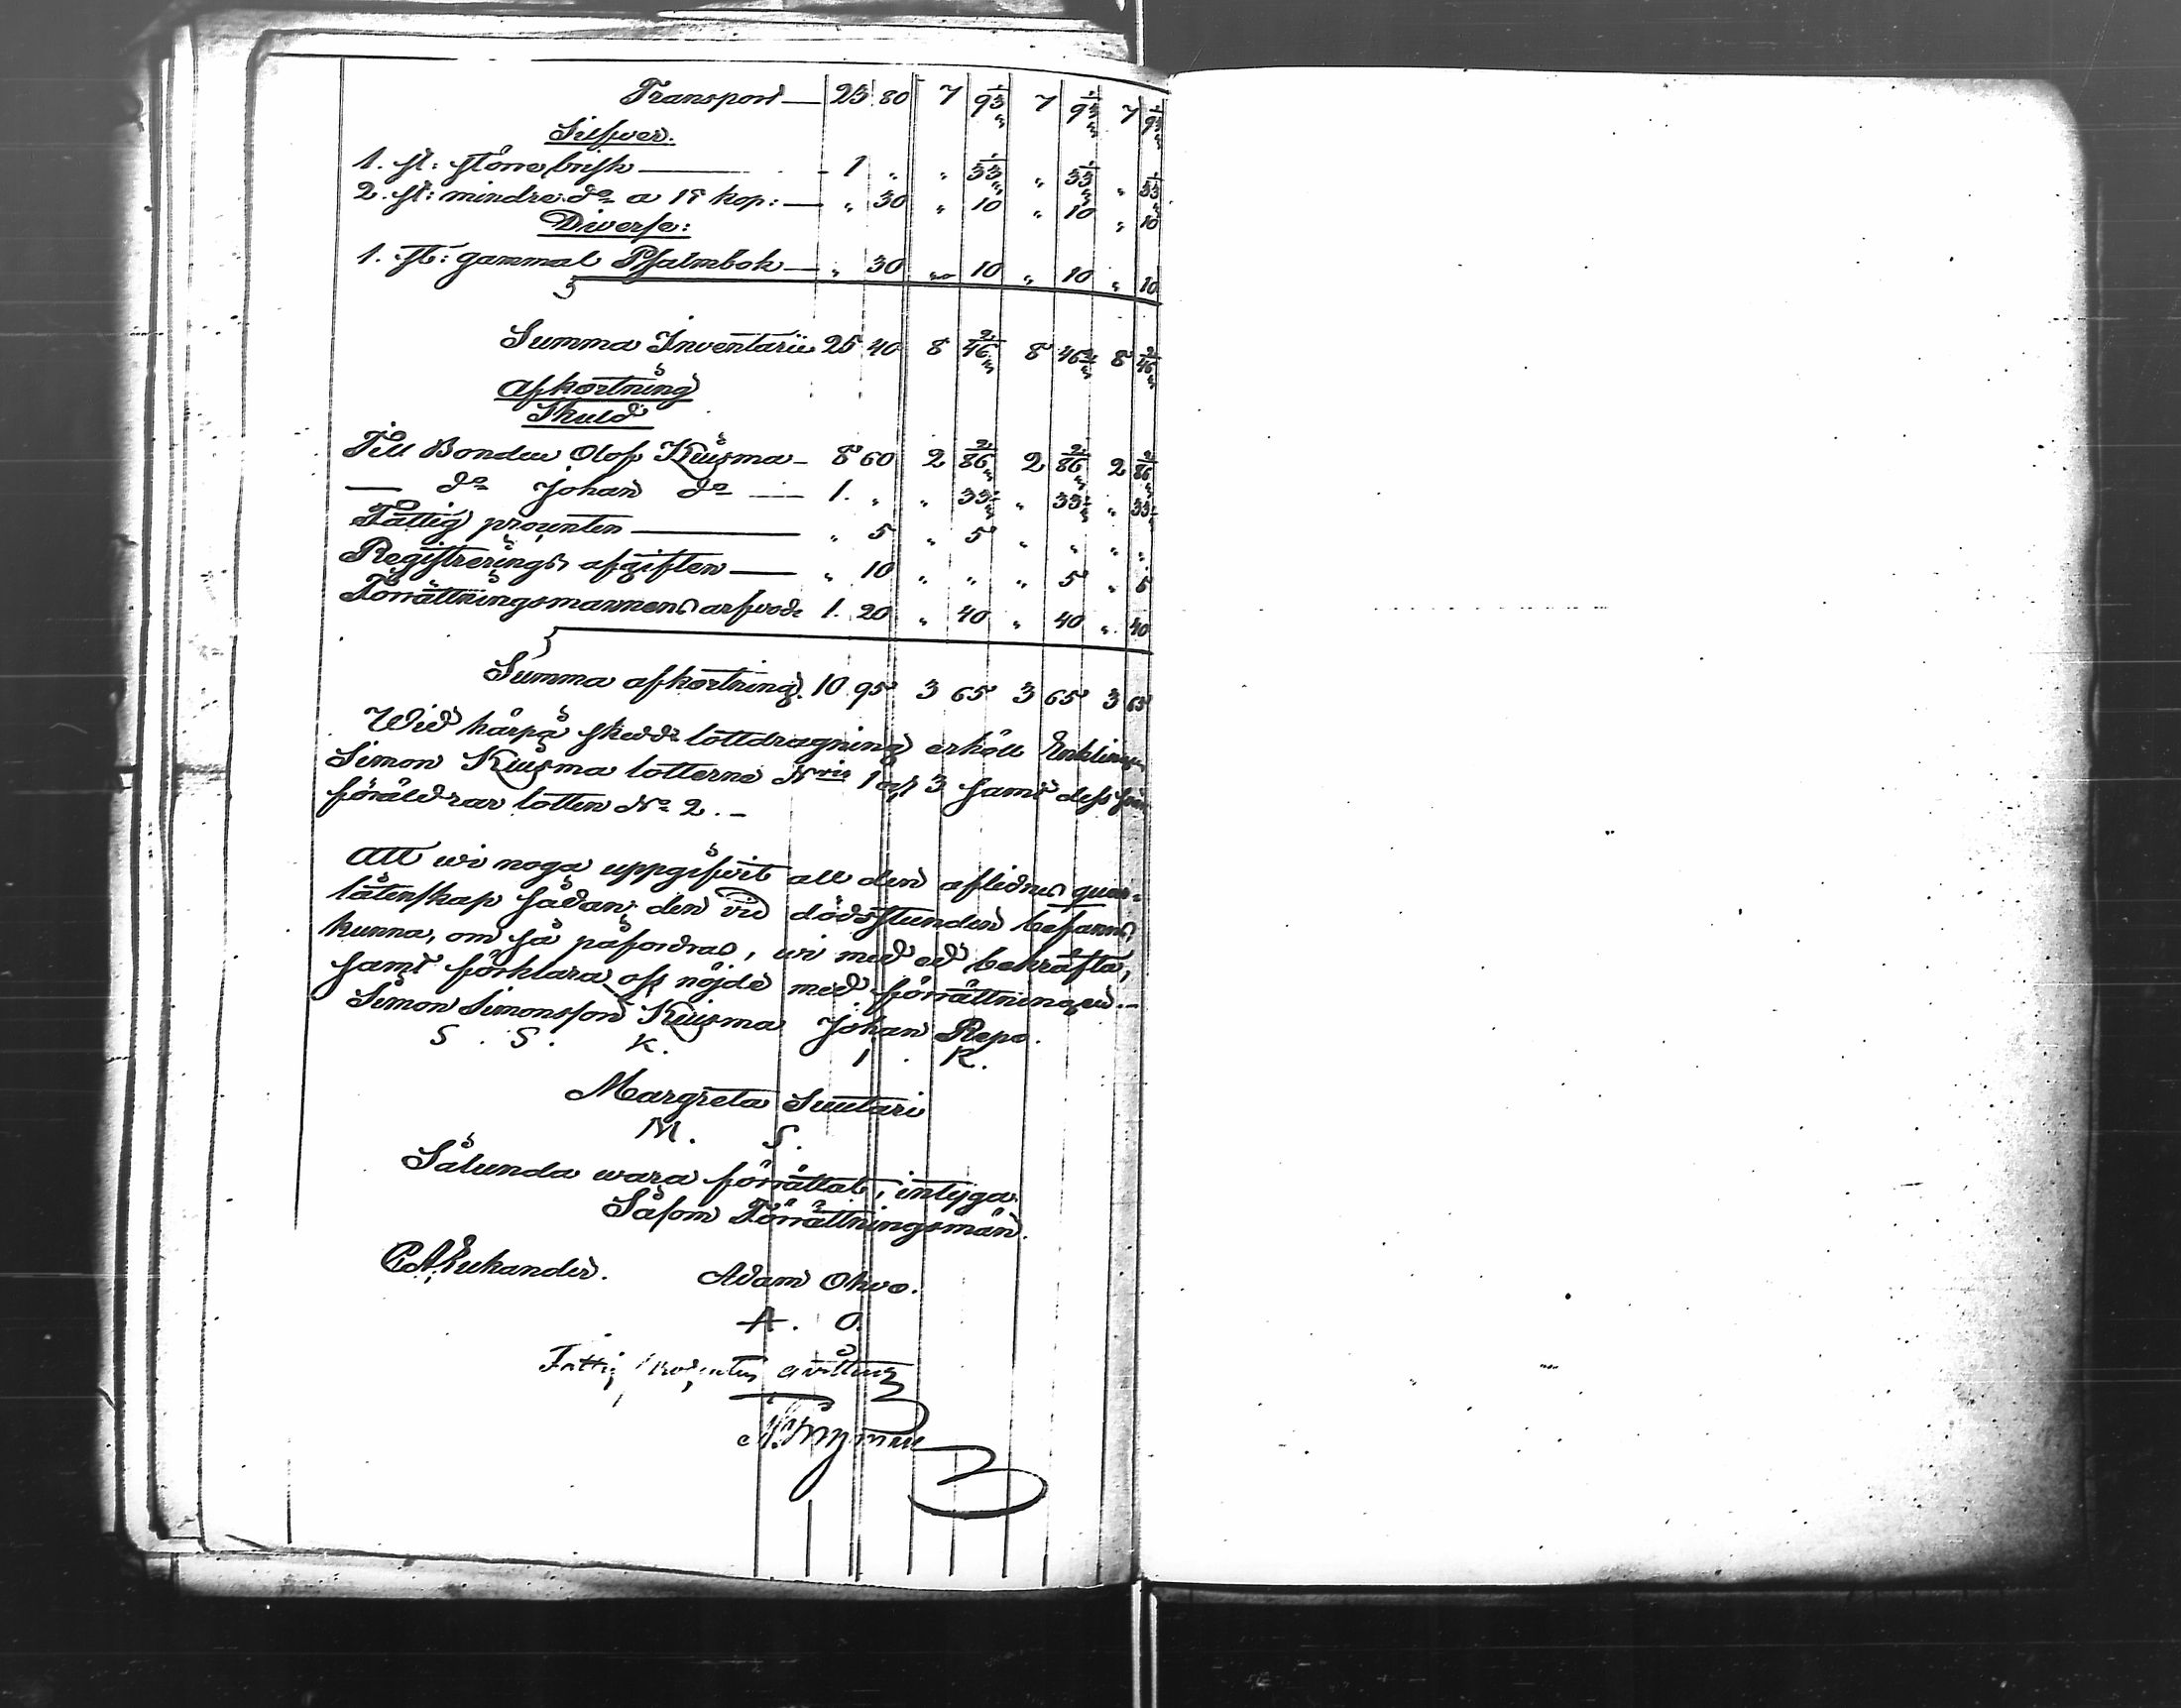 Transport — 23 80 7 93 1/3 7 93 1/3 7 93 1/3
Silfwer.
1. st: större brisk — 1 „ „ 33 1/3 „ 33 1/3 „ 33 1/3
2. st: mindre do a 15 kop: — „ 30 „ 10 „ 10 „ 10
Diverse:
1. st: gammal Psalmbok — „ 30 „ 10 „ 10 „ 10
Summa Inventarii 25 40 8 46 2/3 8 46 2/3 8 46 2/3
Afkortning
Skuld
Till Bonden Olof Kuisma – 8 60 2 86 2/3 2 86 2/3 2 86 2/3
— do Johan do — 1. „ „ 33 1/3 „ 33 1/3 „ 33 1/3
Fattig procenten — „ 5 „ 5 „ „ „ „
Registrerings afgiften — „ 10 „ „ „ 5 „ 5
Förrättningsmannens arfvode 1. 20 „ 40 „ 40 „ 40
Summa afkortning. 10 95 3 65 3 65 3 65
Wid härpå skedd lottdragning erhöll Enklingen
Simon Kuisma lotterne Nris 1 och 3 samt dess
föräldrar lotten No 2. –
Att wi noga uppgifvit all den aflidnes quar-
låtenskap sådan den vid dödsstunden befanns,
kunna, om så påfordras, wi med ed bekräfta,
samt förklara oss nöjde med förrättningen. –
Simon Simonsson Kuisma Johan Repo.
S. S. K. I. R.
Margreta Suutari
M. S.
Sålunda wara förrättat, intyga.
Såsom Förrättningsmän.
Adam Ohvo.
A. O.
Fattig procenten qvitteras